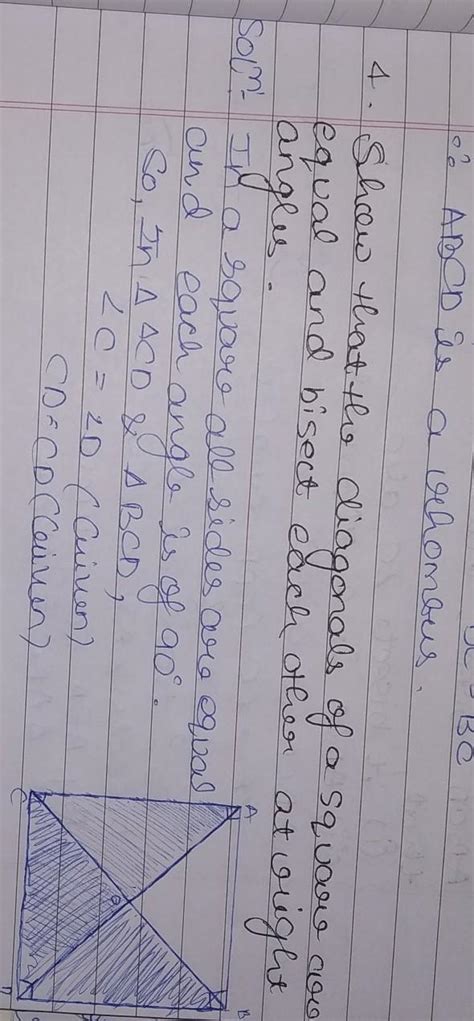 ∴ ABCD is a rhombus.
4. Show that the diagonals of a square are
equal and bisect each other at right
angles.
Solⁿ- In a square all sides are equal
and each angle is of 90°.
So, In Δ ACD & Δ BCD,
∠C = ∠D (Given)
CD = CD (Given)
A
B
C
D
O